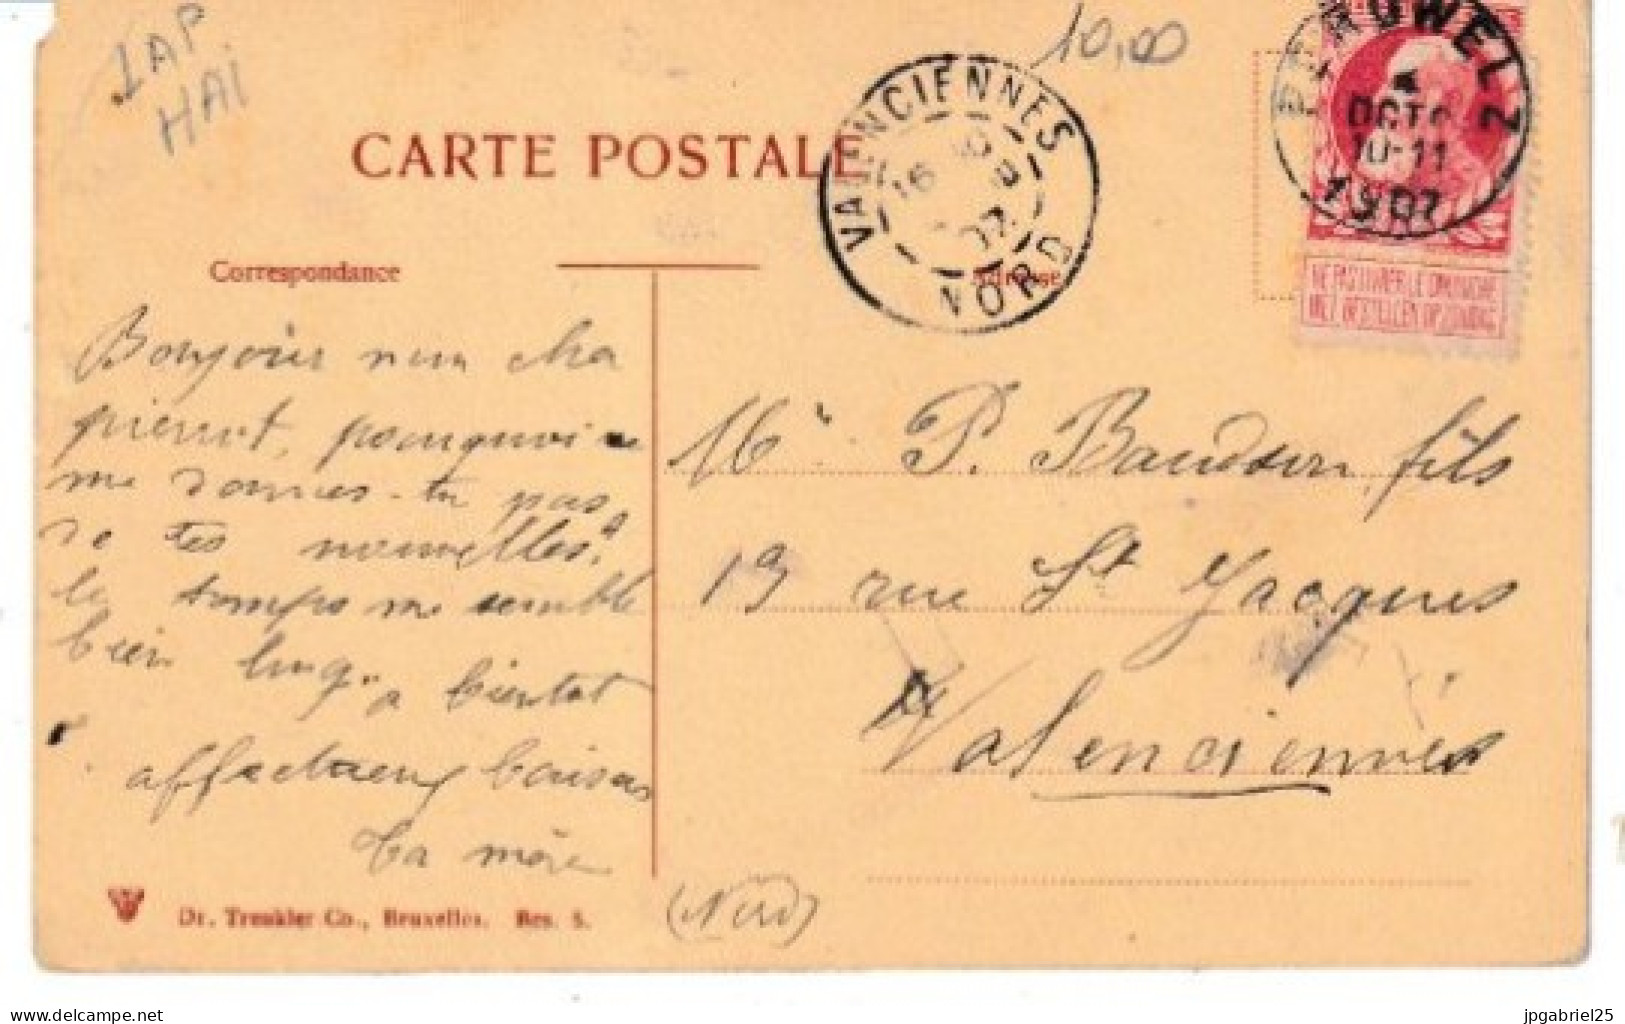 1AP
HAI
10,00
CARTE POSTALE
VALENCIENNES
16
NORD
PERUWELZ
OCTO
10-11
1907
NE PAS LIVRER LE DIMANCHE
NIET BESTELLEN OP ZONDAG
Correspondance
Adresse
Bonjour mon cha
pierrot, pourquoi ne
me donnes-tu pas
de tes nouvelles?
le temps me semble
bien long. a bientot
affectueux baisers
Ta mère
Mr P. Baudson fils
13 rue St Jacques
Valenciennes
(Nord)
Dr. Trenkler Co., Bruxelles. Bes. 5.
jpgabriel25